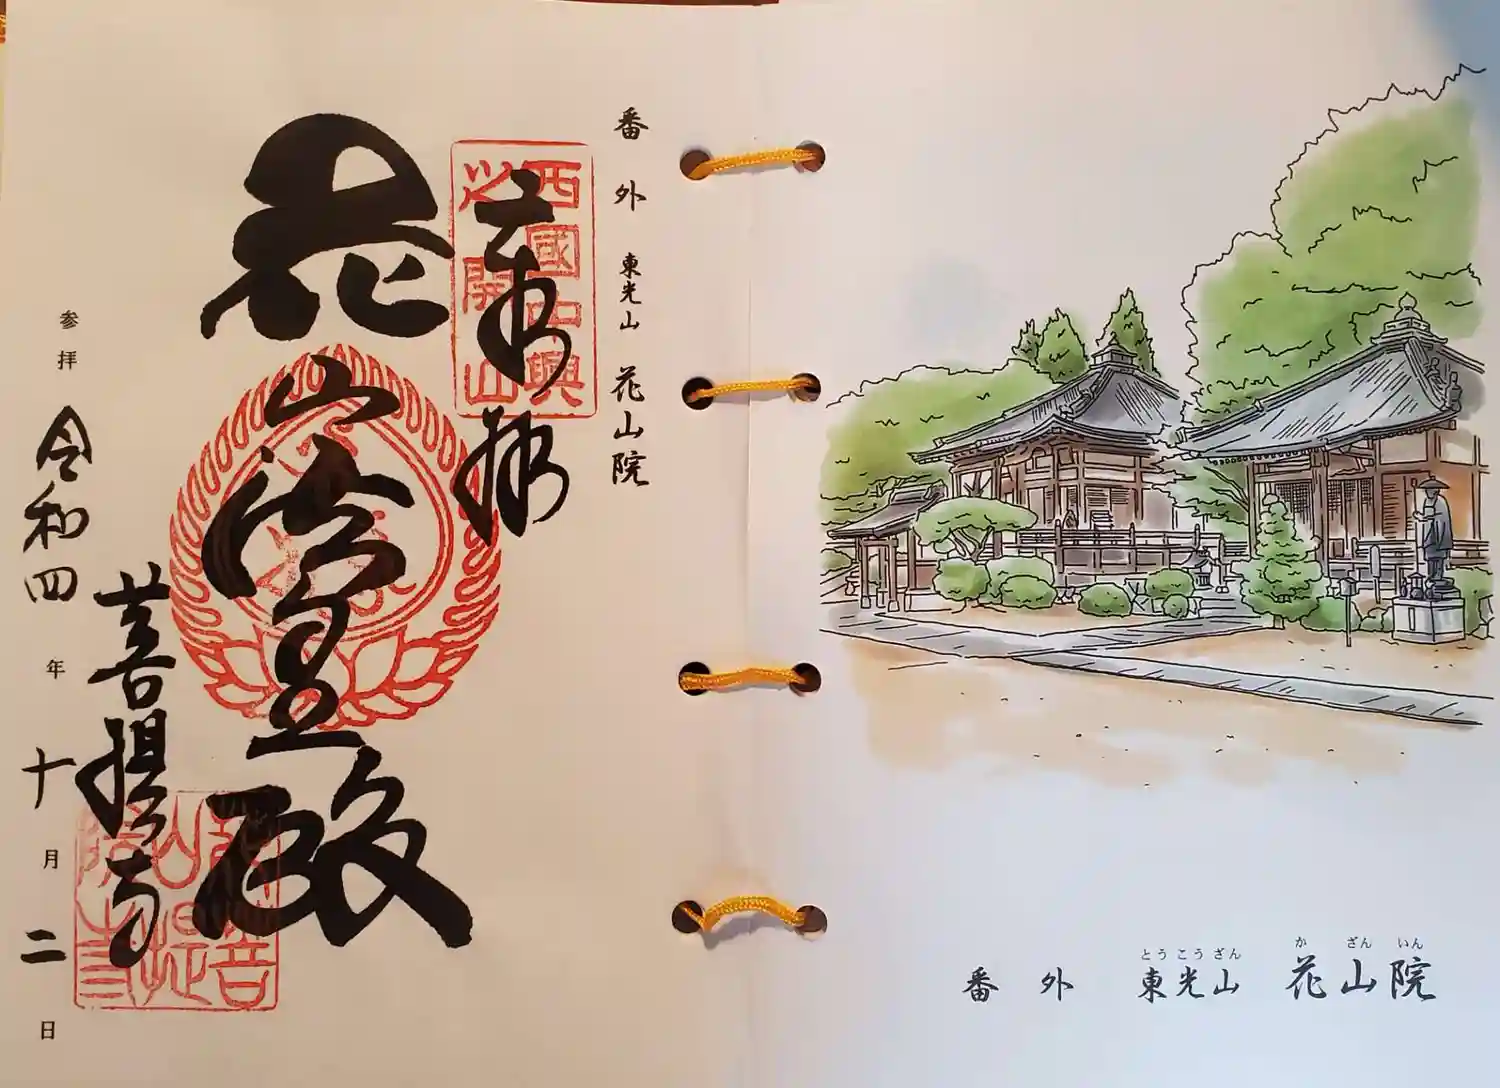 番外 東光山 花山院
奉拝
西國中興
之開山
花山法皇殿
菩提寺
花山院菩提寺
参拝 令和四年十月二日
とうこうざん かざんいん
番外 東光山 花山院